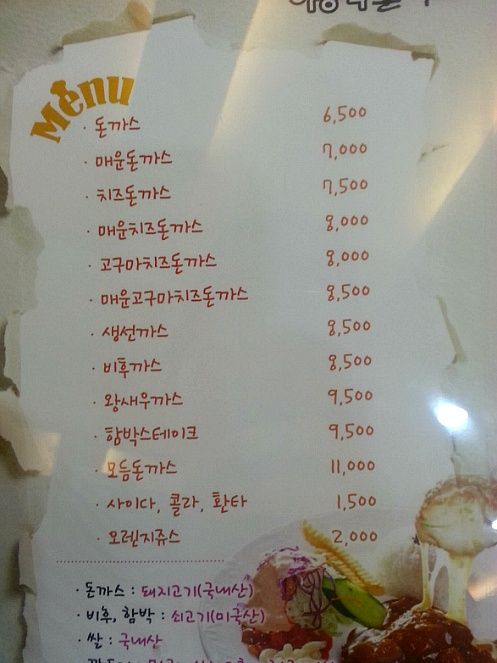 Menu
· 돈까스 6,500
· 매운돈까스 7,000
· 치즈돈까스 7,500
· 매운치즈돈까스 8,000
· 고구마치즈돈까스 8,000
· 매운고구마치즈돈까스 8,500
· 생선까스 8,500
· 비후까스 8,500
· 왕새우까스 9,500
· 함박스테이크 9,500
· 모듬돈까스 11,000
· 사이다, 콜라, 환타 1,500
· 오렌지쥬스 2,000
· 돈까스 : 돼지고기(국내산)
· 비후, 함박 : 쇠고기(미국산)
· 쌀 : 국내산